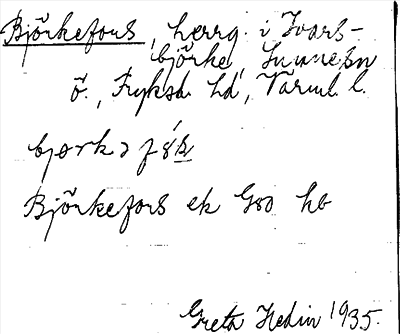 Björkefors, herrg. i Ivars-
björke, Sunne sn
ö., Fryksd. hd, Värml. l.
Björkefors ek Gso hb
Greta Hedin 1935.